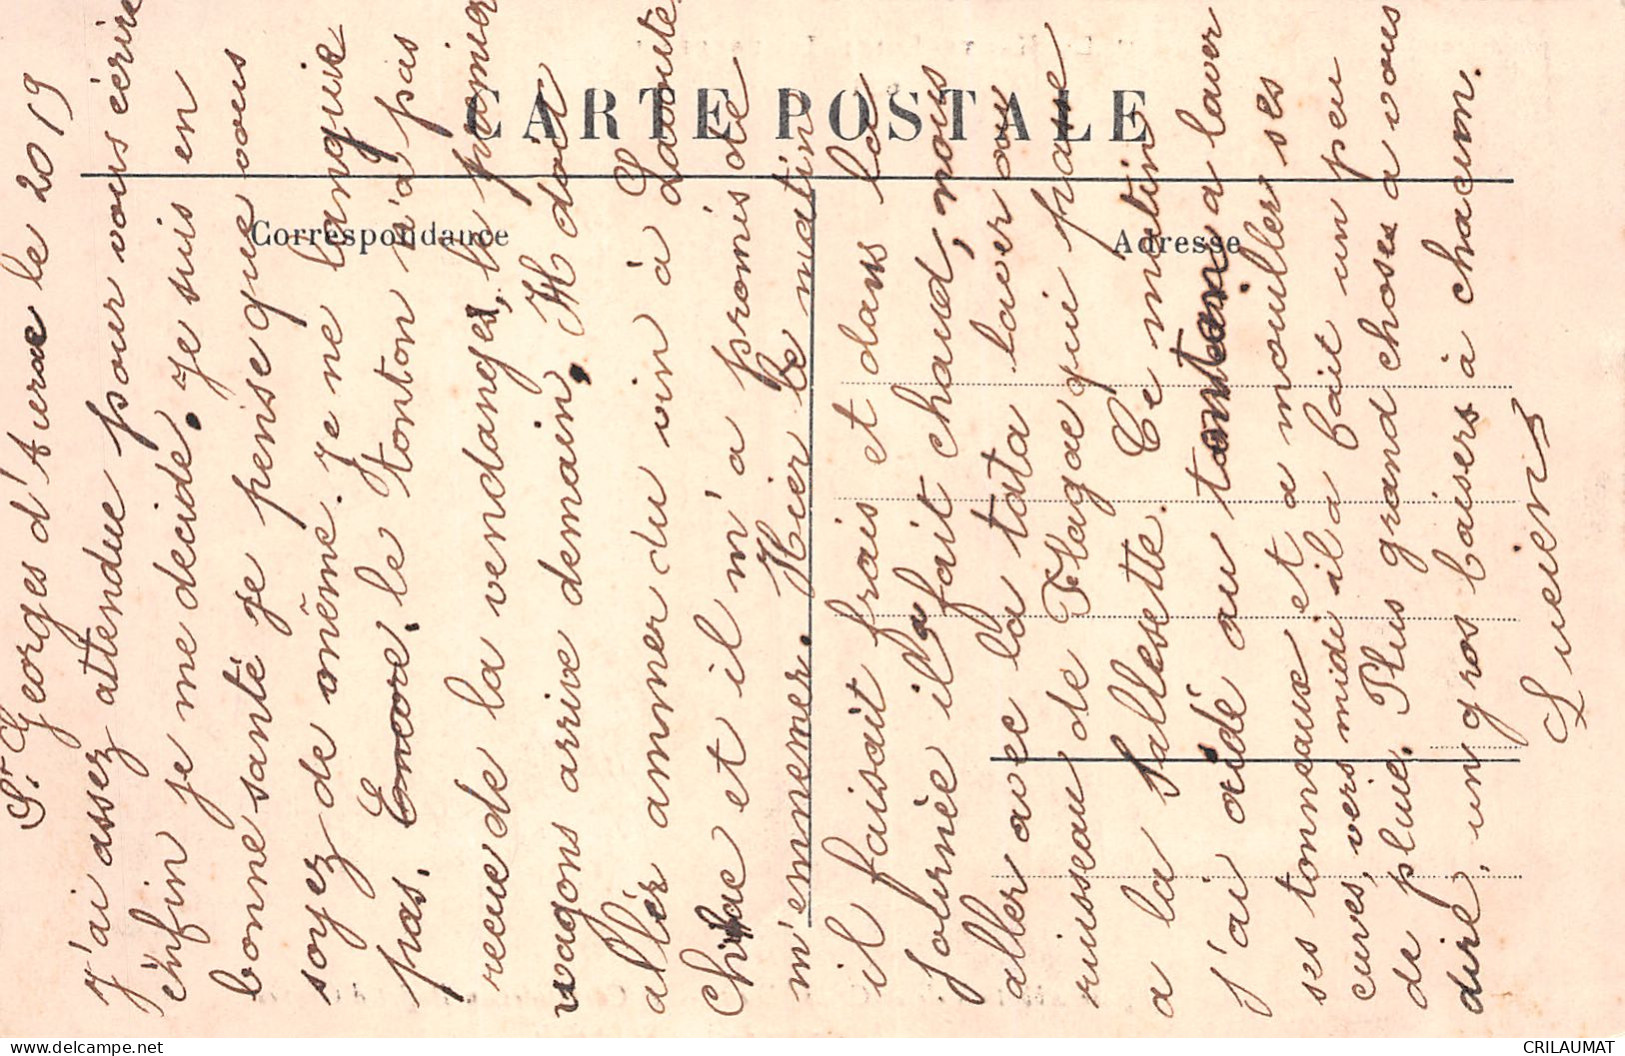 CARTE POSTALE
Correspondance
Adresse
St Georges d'Aurac le 20 19
J'ai assez attendue pour vous écrire
enfin je me decide. Je suis en
bonne santé je pense que vous
soyez de même. Je ne languie
pas. Encore, le tonton n'a pas
recue de la vendanges, le premier
wagons arrive demain, M doit
allér ammer du vin à
et il m'a promis de
m'emmener. Hier le matin
il faisait frais et dans la
journée il a fait chaud, nous
aller avec la tata laver au
ruisseau de Flagac qui passe
a la Sallesette. Ce matin
j'ai aidé au tonton a laver
ses tonneaux et a mouillers ses
cuves, vers midi il a fait un peu
de pluie. Plus grand choses a vous
dire, un gros baisers à chacun.
Lucien
CRILAUMAT